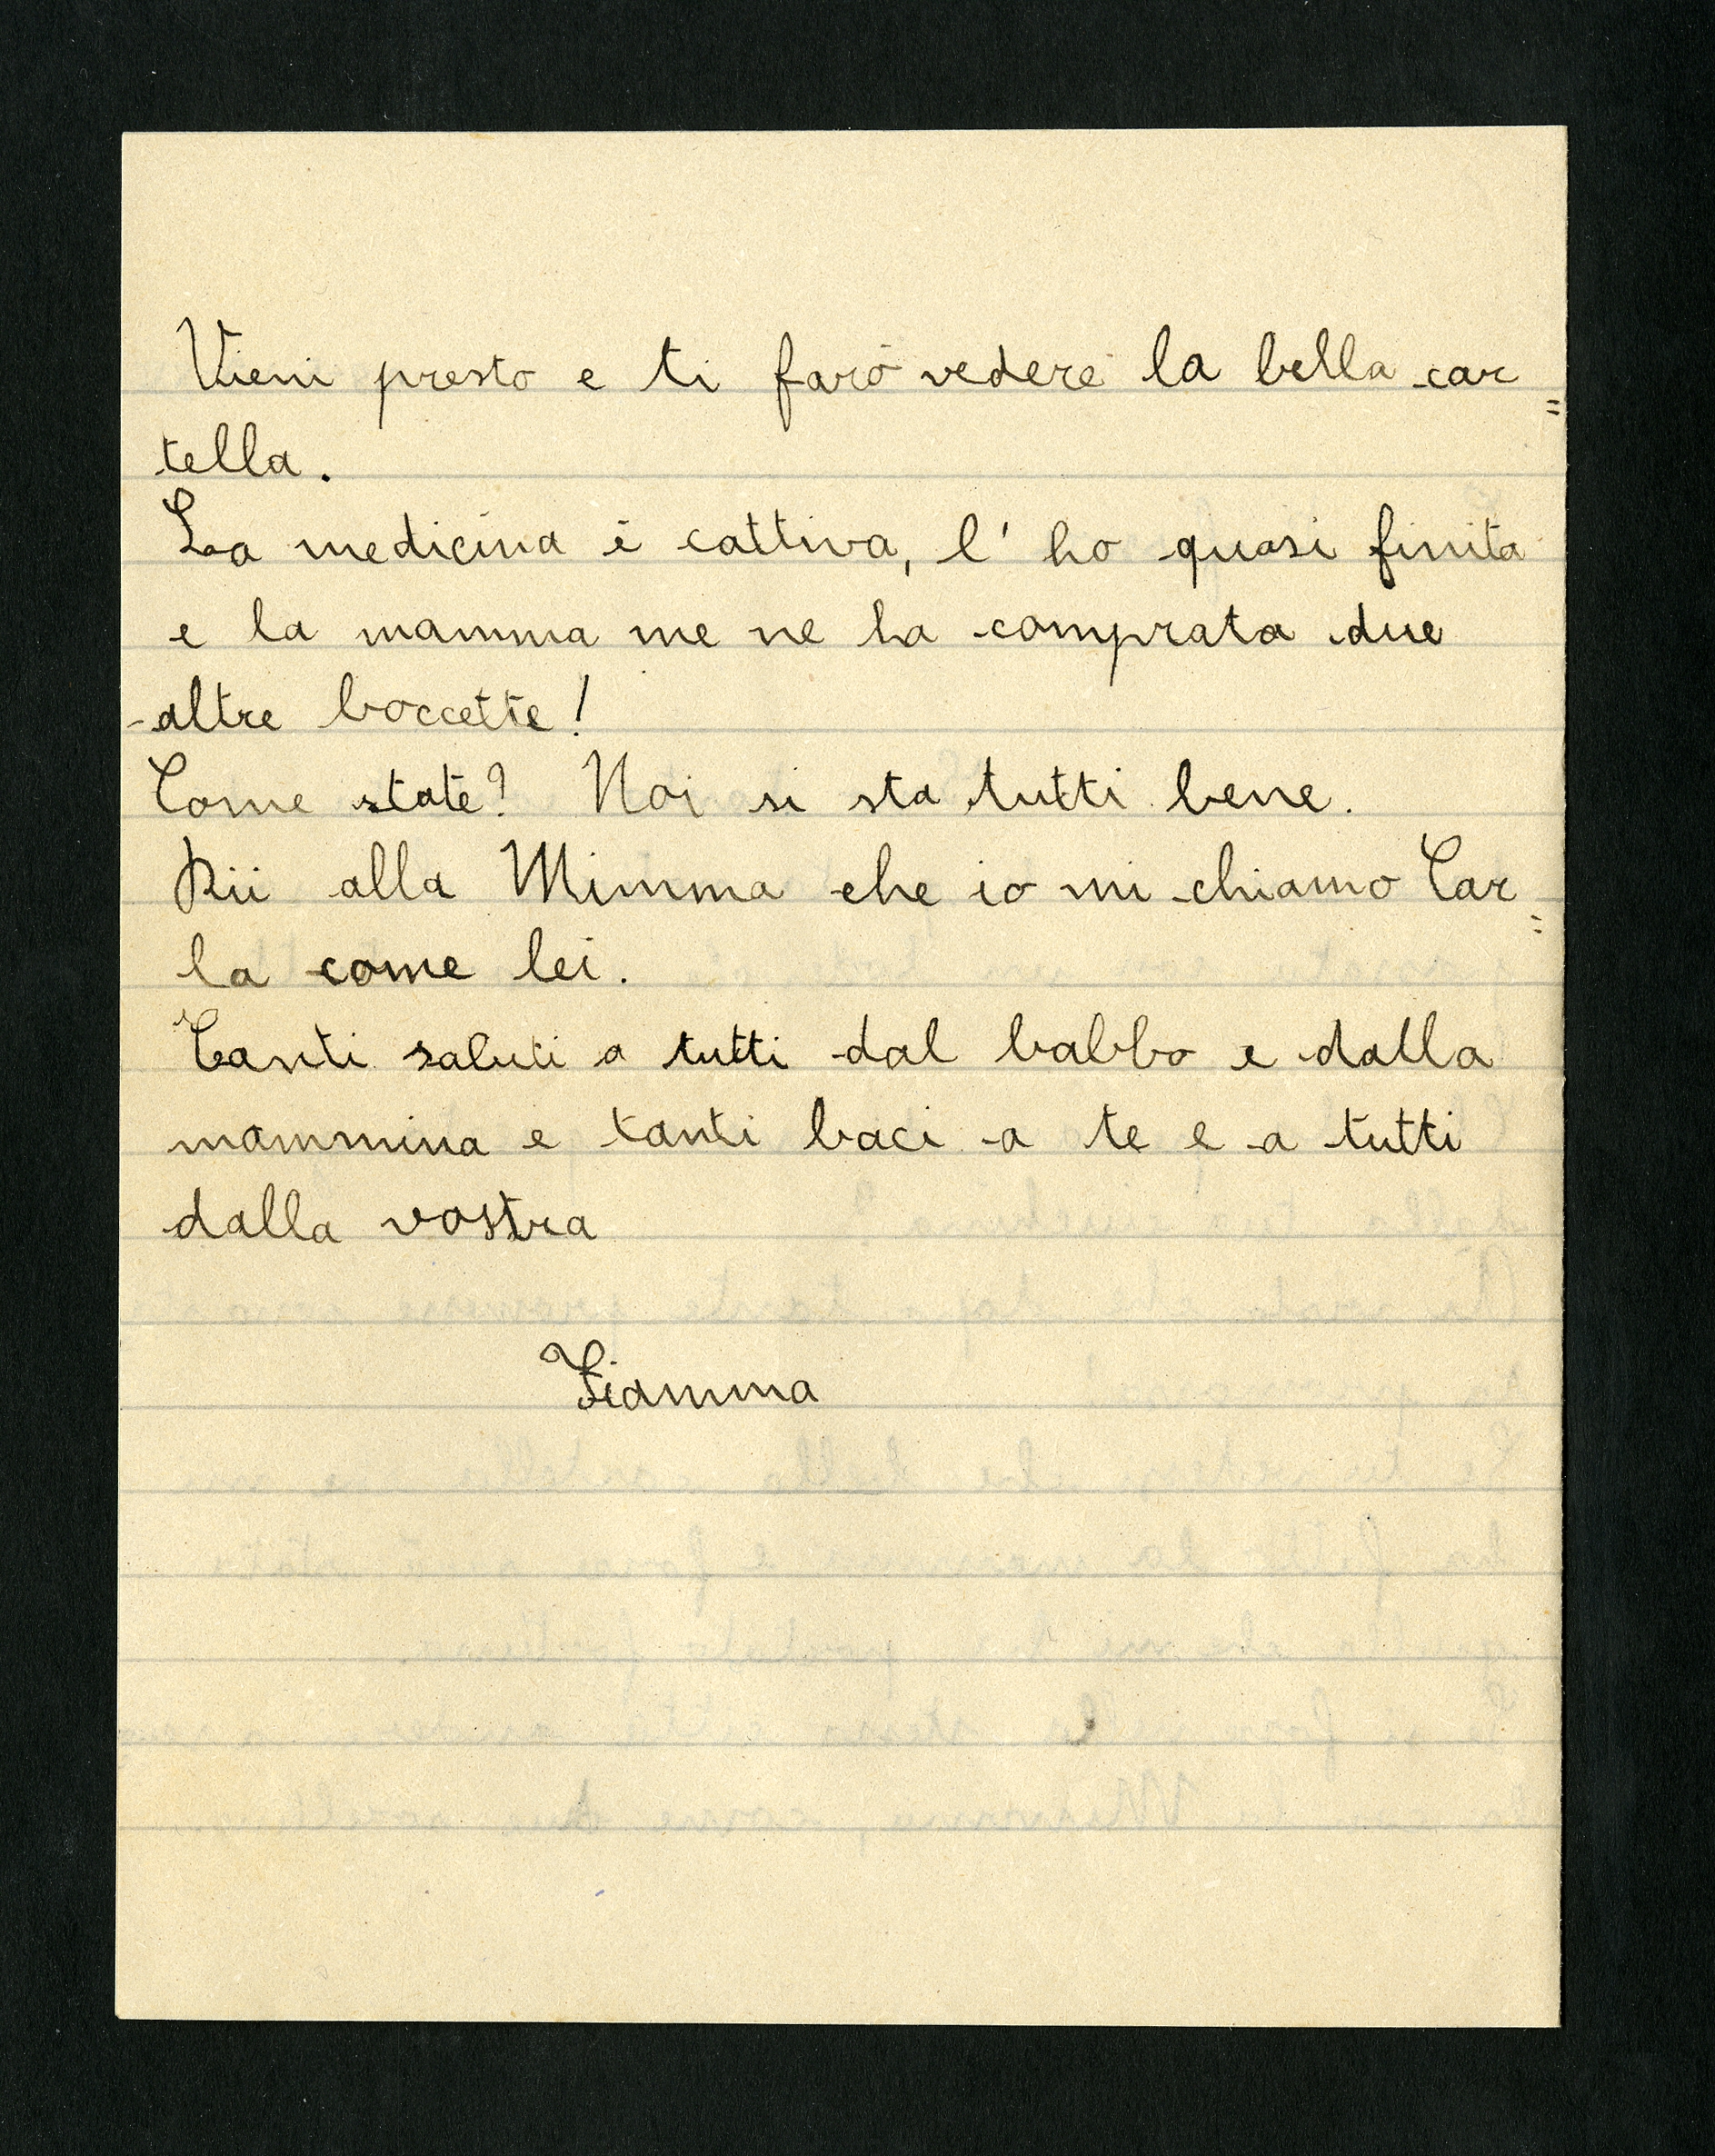 Vieni presto e ti farò vedere la bella car=
tella.
La medicina è cattiva, l'ho quasi finita
e la mamma me ne ha comprata due
altre boccette!
Come state? Noi si sta tutti bene.
Dii alla Mimma che io mi chiamo Car=
la come lei.
Tanti saluti a tutti dal babbo e dalla
mammina e tanti baci a te e a tutti
dalla vostra
Fiamma